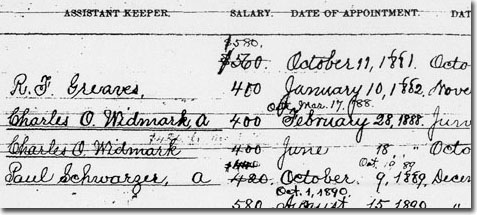 ASSISTANT KEEPER. SALARY. DATE OF APPOINTMENT. DAT
$580.
$560 October 11, 1861. Octo
R. F. Greaves, 400 January 10, 1862. Nove
Mar. 17, /88.
Charles O. Widmark, a 400 February 28, 1888. Jun
Charles O. Widmark 400 June 18 " Octo
Oct. 10 '89
Paul Schwarzer, a 420 October 9, 1889. Decem
Oct. 1, 1890.
580 August 15, 1890 "